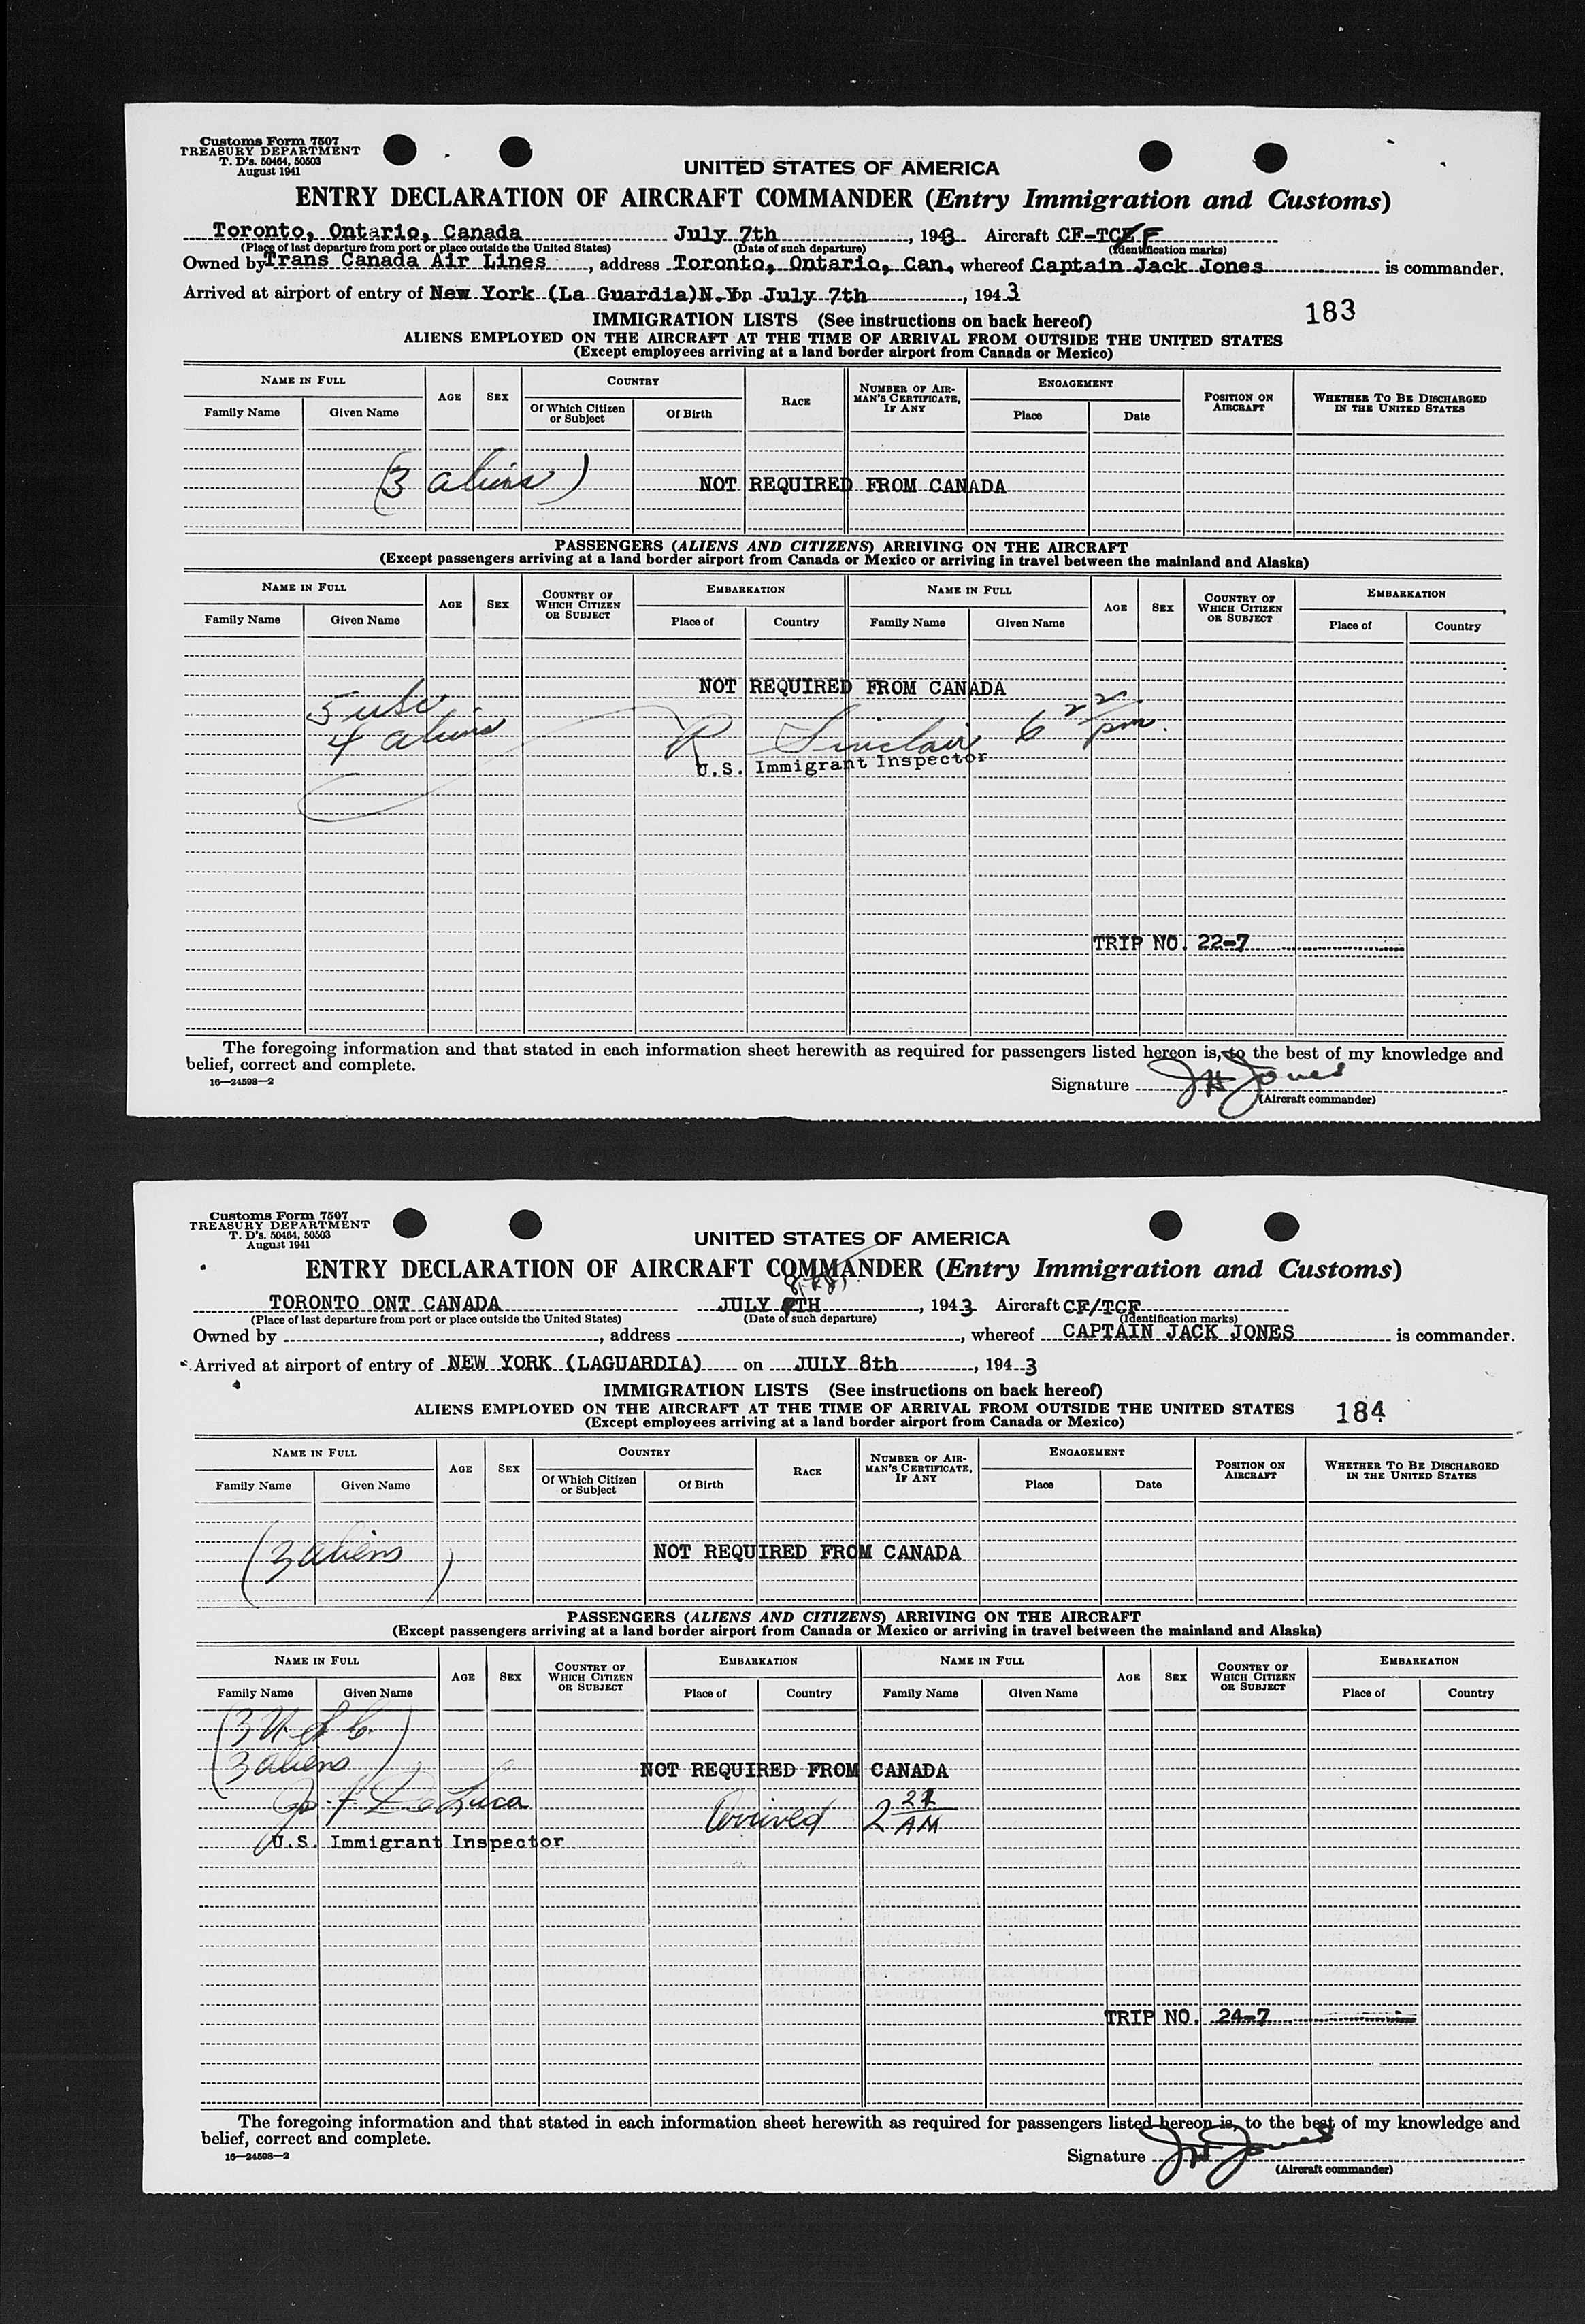 Customs Form 7507
TREASURY DEPARTMENT
T. D's. 50464, 50503
August 1941
UNITED STATES OF AMERICA
ENTRY DECLARATION OF AIRCRAFT COMMANDER (Entry Immigration and Customs)
Toronto, Ontario, Canada July 7th, 1943 Aircraft CF-TCF
(Place of last departure from port or place outside the United States) (Date of such departure) (Identification marks)
Owned by Trans Canada Air Lines, address Toronto, Ontario, Can, whereof Captain Jack Jones is commander.
Arrived at airport of entry of New York (La Guardia) N.Y. on July 7th, 1943
183
IMMIGRATION LISTS (See instructions on back hereof)
ALIENS EMPLOYED ON THE AIRCRAFT AT THE TIME OF ARRIVAL FROM OUTSIDE THE UNITED STATES
(Except employees arriving at a land border airport from Canada or Mexico)
NAME IN FULL AGE SEX COUNTRY RACE NUMBER OF AIRMAN'S CERTIFICATE, IF ANY ENGAGEMENT POSITION ON AIRCRAFT WHETHER TO BE DISCHARGED IN THE UNITED STATES
Family Name Given Name Of Which Citizen or Subject Of Birth Place Date
(3 aliens) NOT REQUIRED FROM CANADA
PASSENGERS (ALIENS AND CITIZENS) ARRIVING ON THE AIRCRAFT
(Except passengers arriving at a land border airport from Canada or Mexico or arriving in travel between the mainland and Alaska)
NAME IN FULL AGE SEX COUNTRY OF WHICH CITIZEN OR SUBJECT EMBARKATION NAME IN FULL AGE SEX COUNTRY OF WHICH CITIZEN OR SUBJECT EMBARKATION
Family Name Given Name Place of Country Family Name Given Name Place of Country
NOT REQUIRED FROM CANADA
5 usc
4 aliens R Sinclair 6 22/pm.
U.S. Immigrant Inspector
TRIP NO. 22-7
The foregoing information and that stated in each information sheet herewith as required for passengers listed hereon is, to the best of my knowledge and
belief, correct and complete.
16—24598—2
Signature JH Jones
(Aircraft commander)
Customs Form 7507
TREASURY DEPARTMENT
T. D's. 50464, 50503
August 1941
UNITED STATES OF AMERICA
ENTRY DECLARATION OF AIRCRAFT COMMANDER (Entry Immigration and Customs)
TORONTO ONT CANADA JULY TH, 1943 Aircraft CF/TCF
(Place of last departure from port or place outside the United States) (Date of such departure) (Identification marks)
Owned by , address , whereof CAPTAIN JACK JONES is commander.
Arrived at airport of entry of NEW YORK (LAGUARDIA) on JULY 8th, 1943
IMMIGRATION LISTS (See instructions on back hereof)
ALIENS EMPLOYED ON THE AIRCRAFT AT THE TIME OF ARRIVAL FROM OUTSIDE THE UNITED STATES 184
(Except employees arriving at a land border airport from Canada or Mexico)
NAME IN FULL AGE SEX COUNTRY RACE NUMBER OF AIRMAN'S CERTIFICATE, IF ANY ENGAGEMENT POSITION ON AIRCRAFT WHETHER TO BE DISCHARGED IN THE UNITED STATES
Family Name Given Name Of Which Citizen or Subject Of Birth Place Date
(3 aliens) NOT REQUIRED FROM CANADA
PASSENGERS (ALIENS AND CITIZENS) ARRIVING ON THE AIRCRAFT
(Except passengers arriving at a land border airport from Canada or Mexico or arriving in travel between the mainland and Alaska)
NAME IN FULL AGE SEX COUNTRY OF WHICH CITIZEN OR SUBJECT EMBARKATION NAME IN FULL AGE SEX COUNTRY OF WHICH CITIZEN OR SUBJECT EMBARKATION
Family Name Given Name Place of Country Family Name Given Name Place of Country
(3
3 aliens) NOT REQUIRED FROM CANADA
De Luca Arrived 2 AM
U.S. Immigrant Inspector
TRIP NO. 24-7
The foregoing information and that stated in each information sheet herewith as required for passengers listed hereon is, to the best of my knowledge and
belief, correct and complete.
16—24598—2
Signature JH Jones
(Aircraft commander)